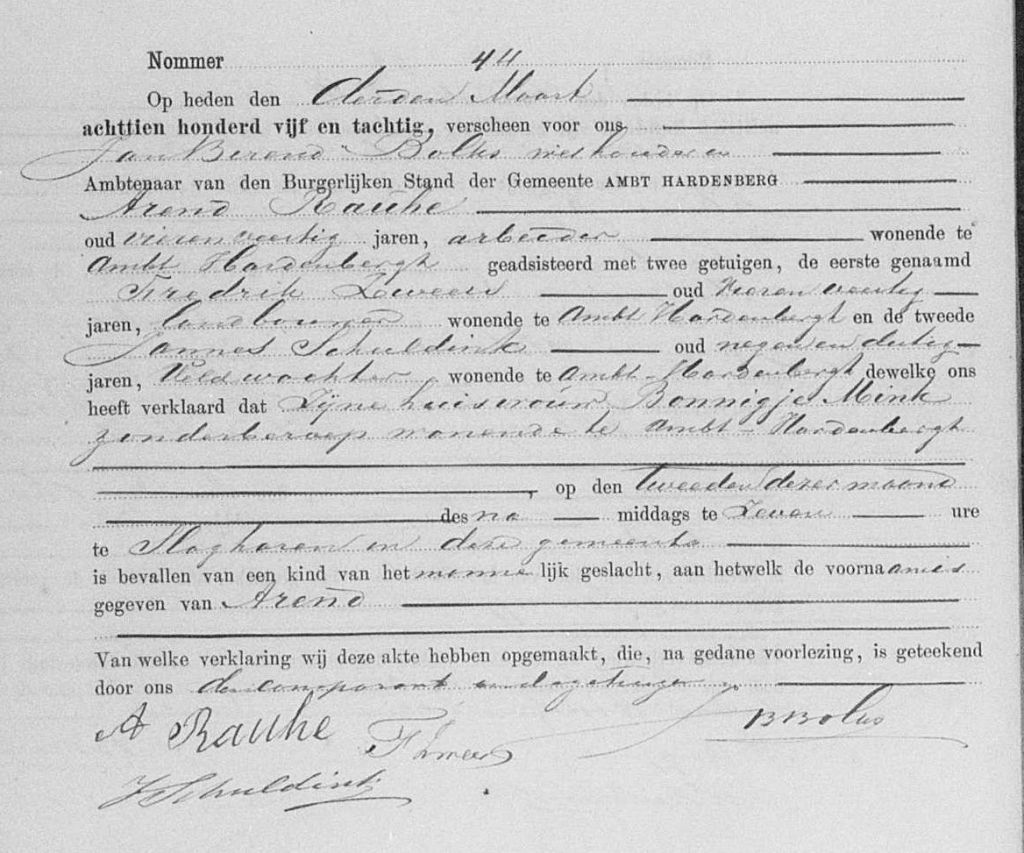 Nommer 44
Op heden den derden Maart
achttien honderd vijf en tachtig, verscheen voor ons,
Jan Berend Bolks wethouder en
Ambtenaar van den Burgerlijken Stand der Gemeente AMBT HARDENBERG
Arend Rauhe
oud vierenveertig jaren, arbeider wonende te
Ambt Hardenbergh geadsisteerd met twee getuigen, de eerste genaamd
Fredrik Zweers oud vieren veertig
jaren, landbouwer wonende te Ambt Hardenbergh en de tweede
Jannes Schuldink oud negen en dertig
jaren, Veldwachter wonende te Ambt-Hardenbergh dewelke ons
heeft verklaard dat Zijne huisvrouw Bonnigje Mink
zonder beroep wonende te Ambt-Hardenbergh
, op den tweeden dezer maand
des na middags te Zeven ure
te Slagharen in deze gemeente
is bevallen van een kind van het manne lijk geslacht, aan hetwelk de voornaam is
gegeven van Arend
Van welke verklaring wij deze akte hebben opgemaakt, die, na gedane voorlezing, is geteekend
door ons den comparant en de getuigen
A Rauhe F Zweers BBolks
J Schuldink